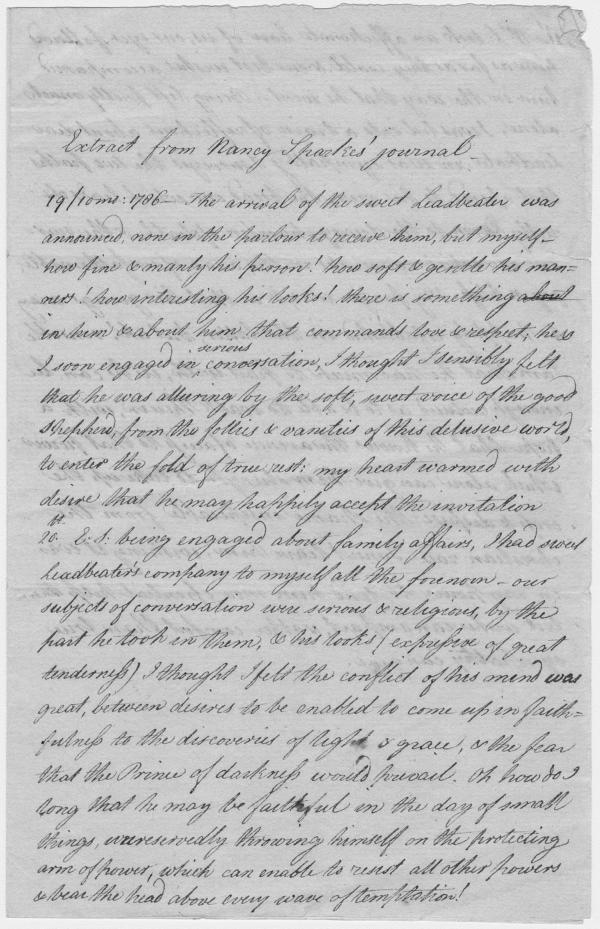 Extract from Nancy Sparkes' journal
19/10mo: 1786 — The arrival of the sweet Leadbeater was
announced, none in the parlour to receive him, but myself —
how fine & manly his person! how soft & gentle his man=
ners! how interesting his looks! there is something about
in him & about him that commands love & respect; he &
I soon engaged in serious conversation, I thought I sensibly felt
that he was alluring by the soft, sweet voice of the good
Shepherd, from the follies & vanities of this delusive world,
to enter the fold of true rest: my heart warmed with
desire that he may happily accept the invitation
20th. E: S: being engaged about family affairs, I had sweet
Leadbeater's company to myself all the forenoon — our
subjects of conversation were serious & religious, by the
part he took in them, & his looks (expressive of great
tenderness) I thought I felt the conflict of his mind was
great, between desires to be enabled to come up in faith=
fulness to the discoveries of light & grace, & the fear
that the Prince of darkness would prevail. Oh how do I
long that he may be faithful in the day of small
things, unreservedly throwing himself on the protecting
arm of power, which can enable to resist all other powers
& bear the head above every wave of temptation!